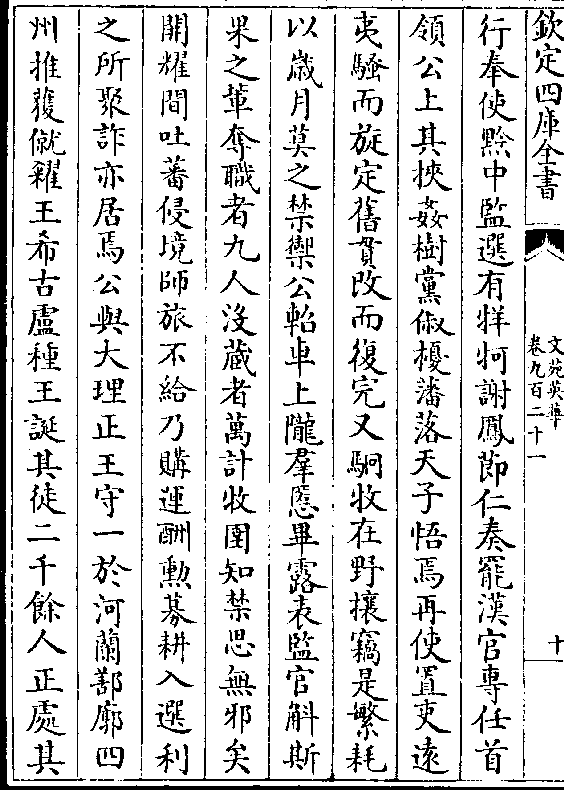 欽定四庫全書
文苑英華
卷九百二十一
十
行奉使黔中監選有牂牁謝鳳節仁奏罷漢官專任首
領公上其挾姦樹黨俶擾藩落天子悟焉再使置吏遠
夷騷而旋定舊貫改而復完又駉牧在野攘竊是繁耗
以歲月莫之禁禦公軺車上隴羣慝畢露表監官斛斯
果之輩奪職者九人沒蔵者萬計牧圉知禁思無邪矣
開耀間吐蕃侵境師旅不給乃購運酬勲募耕入選利
之所聚詐亦居焉公與大理正王守一於河蘭鄯廓四
州推覆僦糴王希古盧種王誕其徒二千餘人正處其